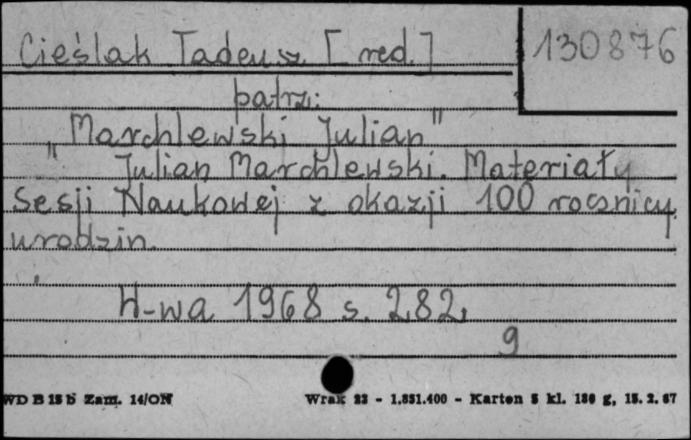 Cieślak Tadeusz [red.]
130876
patrz:
"Marchlewski Julian"
Julian Marchlewski. Materiały
Sesji Naukowej z okazji 100 rocznicy
urodzin.
W-wa 1968 s. 282.
9
WD B 15 b Zam. 14/ON
Wrak 22 - 1.851.400 - Karton 5 kl. 180 g, 15. 2. 67